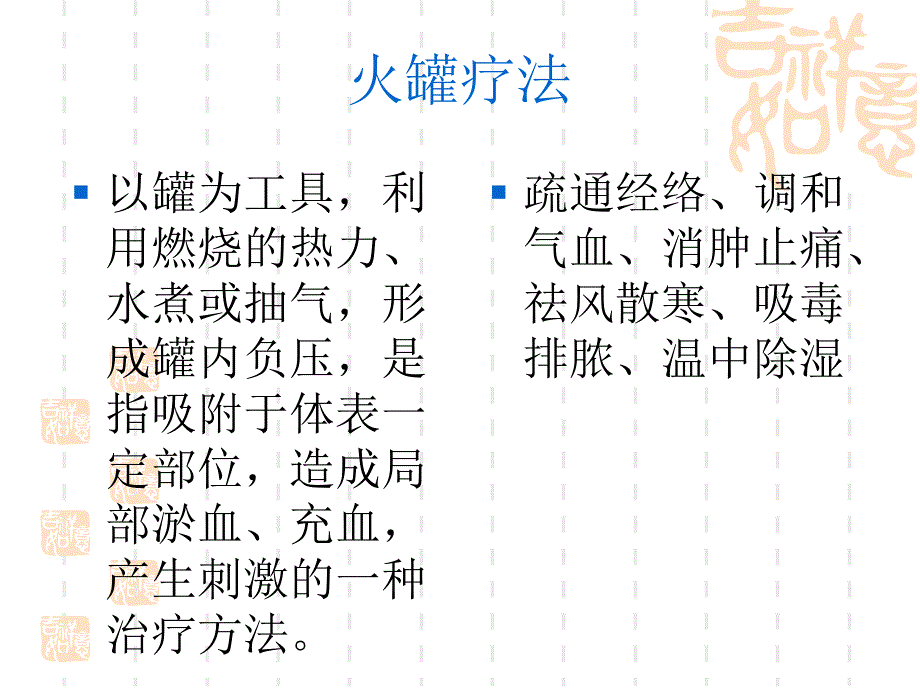 吉祥如意
火罐疗法
以罐为工具，利
用燃烧的热力、
水煮或抽气，形
成罐内负压，是
指吸附于体表一
定部位，造成局
部淤血、充血，
产生刺激的一种
治疗方法。
疏通经络、调和
气血、消肿止痛、
祛风散寒、吸毒
排脓、温中除湿
吉祥如意
吉祥如意
吉祥如意